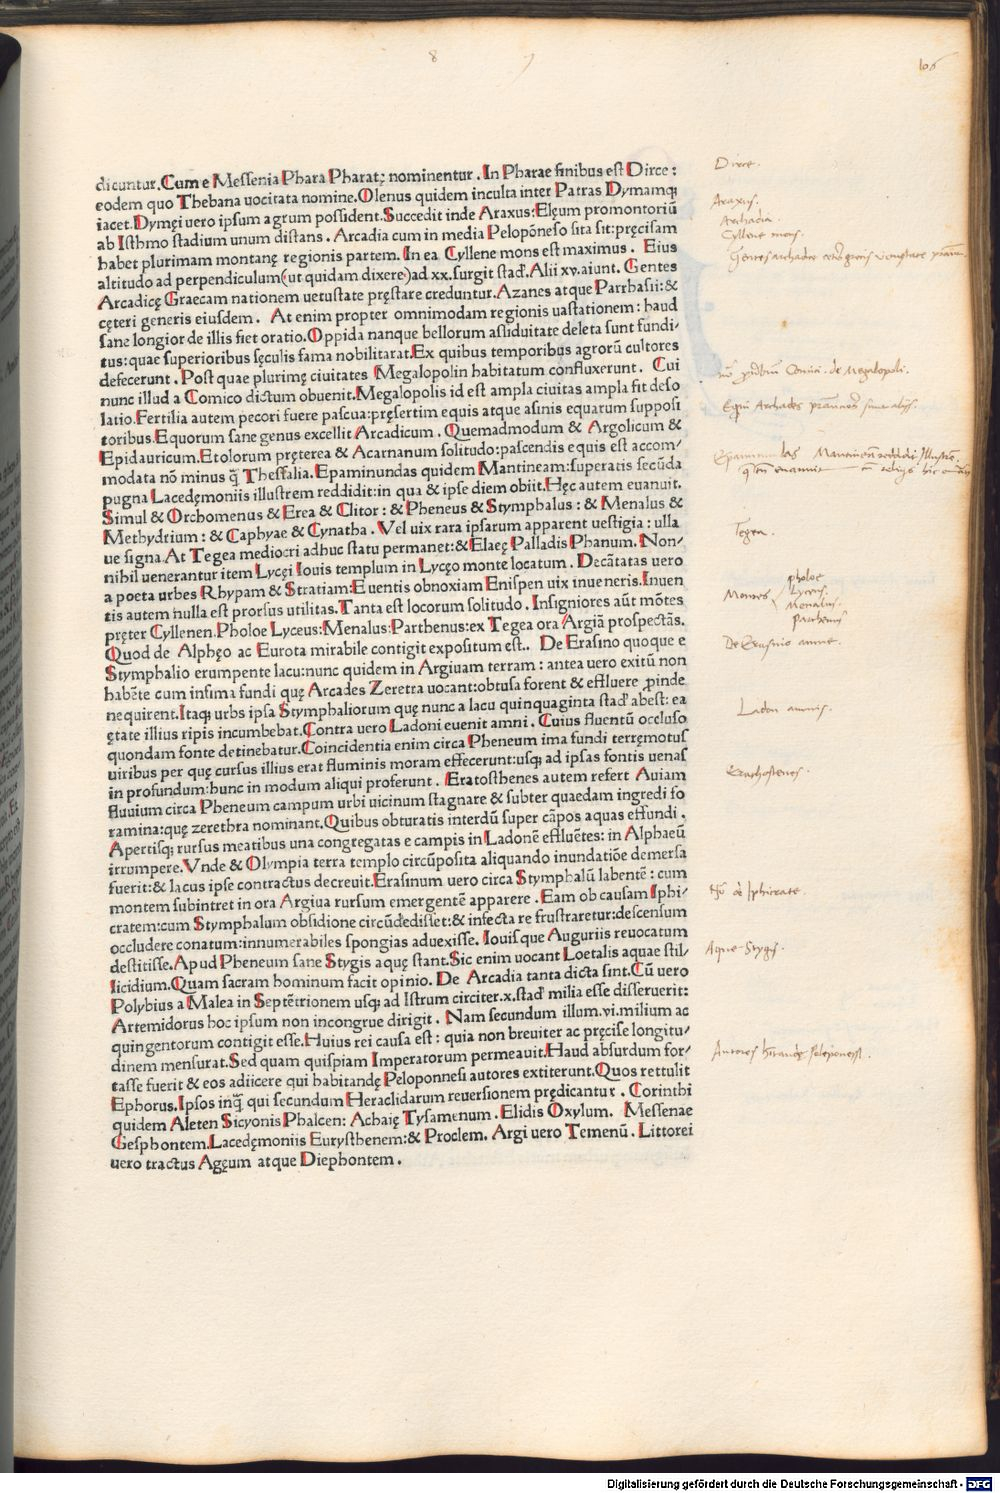 8
106
dicuntur. Cum e Messenia Phara Pharatę nominentur. In Pharae finibus est Dirce:
eodem quo Thebana uocitata nomine. Olenus quidem inculta inter Patras Dymamq;
iacet. Dymęi uero ipsum agrum possident. Succedit inde Araxus: Elęum promontoriū
ab Isthmo stadium unum distans. Arcadia cum in media Peloponeso sita sit: pręcisam
habet plurimam montanę regionis partem. In ea Cyllene mons est maximus. Eius
altitudo ad perpendiculum (ut quidam dixere) ad xx. surgit stad'. Alii xv. aiunt. Gentes
Arcadicę Graecam nationem uetustate pręstare creduntur. Azanes atque Parrhasii: &
cęteri generis eiusdem. At enim propter omnimodam regionis uastationem: haud
sane longior de illis fiet oratio. Oppida nanque bellorum assiduitate deleta sunt fundi-
tus: quae superioribus sęculis fama nobilitarat. Ex quibus temporibus agrorū cultores
defecerunt. Post quae plurimę ciuitates Megalopolin habitatum confluxerunt. Cui
nunc illud a Comico dictum obuenit. Megalopolis id est ampla ciuitas ampla fit deso
latio. Fertilia autem pecori fuere pascua: pręsertim equis atque asinis equarum supposi
toribus. Equorum sane genus excellit Arcadicum. Quemadmodum & Argolicum &
Epidauricum. Etolorum pręterea & Acarnanum solitudo: pascendis equis est accom-
modata nō minus q̄ Thessalia. Epaminundas quidem Mantineam: superatis secūda
pugna Lacedęmoniis illustrem reddidit: in qua & ipse diem obiit. Hęc autem euanuit.
Simul & Orchomenus & Erea & Clitor: & Pheneus & Stymphalus: & Menalus &
Methydtium: & Caphyae & Cynatha. Vel uix rara ipsarum apparent uestigia: ulla
ue signa. At Tegea mediocri adhuc statu permanet: & Elaeę Palladis Phanum. Non-
nibil uenerantur item Lycęi Iouis templum in Lycęo monte locatum. Decātatas uero
a poeta urbes Rhypam & Stratiam: Euentis obnoxiam Enispen uix inueneris. Inuen
tis autem nulla est prorsus utilitas. Tanta est locorum solitudo. Insigniores aūt mōtes
pręter Cyllenen. Pholoe Lyceus: Menalus: Parthenus: ex Tegea ora Argiā prospectās.
Quod de Alphęo ac Eurota mirabile contigit expositum est.. De Erasino quoque e
Stymphalio erumpente lacu: nunc quidem in Argiuam terram: antea uero exitū non
habēte cum infima fundi quę Arcades Zeretra uocant: obtusa forent & effluere ꝓinde
nequirent. Itaq; urbs ipsa Stymphaliorum quę nunc a lacu quinquaginta stad' abest: ea
ętate illius ripis incumbebat. Contra uero Ladoni euenit amni. Cuius fluentū occluso
quondam fonte detinebatur. Coincidentia enim circa Pheneum ima fundi terręmotus
uiribus per quę cursus illius erat fluminis moram effecerunt: usq; ad ipsas fontis uenas
in profundum: hunc in modum aliqui proferunt. Eratosthenes autem refert Auiam
fluuium circa Pheneum campum urbi uicinum stagnare & subter quaedam ingredi fo
ramina: quę zerethra nominant. Quibus obturatis interdū super cāpos aquas effundi.
Apertisq; rursus meatibus una congregatas e campis in Ladonē effluētes: in Alphaeū
irrumpere. Vnde & Olympia terra templo circūposita aliquando inundatiōe demersa
fuerit: & lacus ipse contractus decreuit. Erasinum uero circa Stymphalū labentē: cum
montem subintret in ora Argiua rursum emergentē apparere. Eam ob causam Iphi-
cratem: cum Stymphalum obsidione circūdedisset: & infecta re frustraretur: descensum
occludere conatum: innumerabiles spongias aduexisse. Iouisque Auguriis reuocatum
destitisse. Apud Pheneum sane Stygis aquę stant. Sic enim uocant Loetalis aquae stil-
licidium. Quam sacram hominum facit opinio. De Arcadia tanta dicta sint. Cū uero
Polybius a Malea in Septētrionem usq; ad Istrum circiter .x. stad' milia esse disseruerit:
Artemidorus hoc ipsum non incongrue dirigit. Nam secundum illum .vi. milium ac
quingentorum contigit esse. Huius rei causa est: quia non breuiter ac pręcise longitu-
dinem mensurat. Sed quam quispiam Imperatorum permeauit. Haud absurdum for-
tasse fuerit & eos adiicere qui habitandę Peloponnesi autores extiterunt. Quos rettulit
Ephorus. Ipsos inq̄ qui secundum Heraclidarum reuersionem prędicantur. Corinthi
quidem Aleten Sicyonis Phalcen: Achaię Tysamenum. Elidis Oxylum. Messenae
Gesphontem. Lacedęmoniis Eurysthenem: & Proclem. Argi uero Temenū. Littorei
uero tractus Agęum atque Diephontem.
Dirce.
Araxus.
Archadia.
Cyllene mons.
Gentes archadie
de Megalopoli.
Equi Archades
Epaminundas Mantineam reddidit Illustrē.
Tegea.
Montes
pholoe
Lyceus.
Menalus.
Parthenus
De Erasino amne.
Ladon amnis.
Erathostenes.
de Iphicrate.
Aque Stygis.
Autores
Digitalisierung gefördert durch die Deutsche Forschungsgemeinschaft - DFG